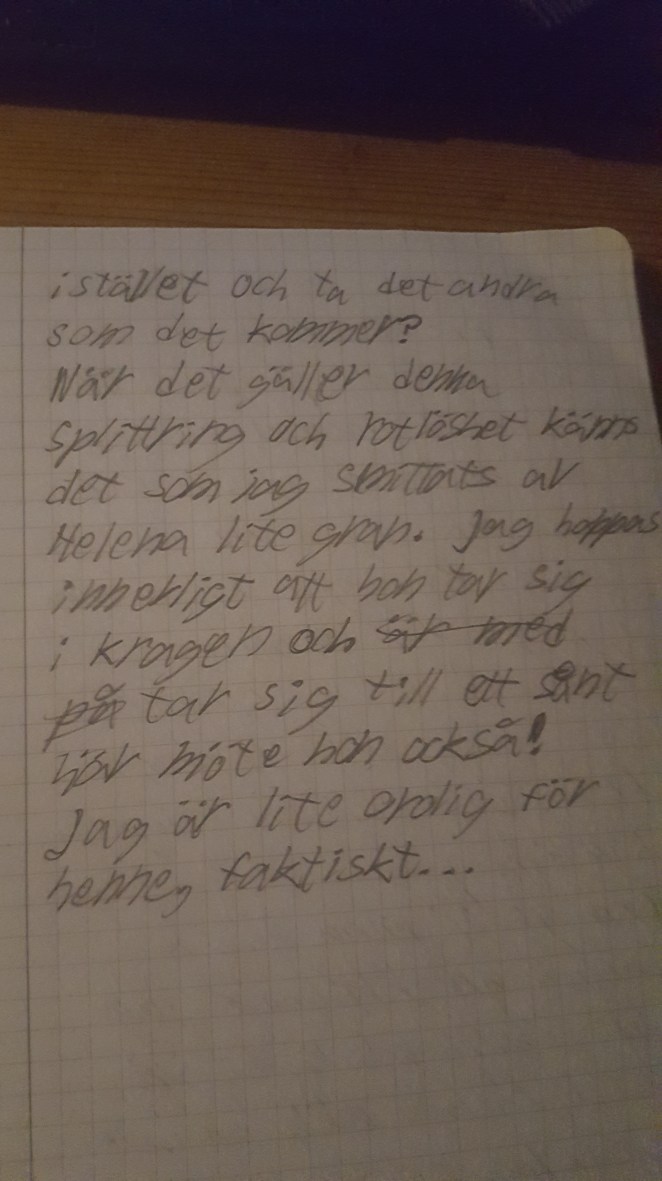 istället och ta det andra
som det kommer?
När det gäller denna
splittring och rotlöshet känns
det som jag smittats av
Helena lite gran. Jag hoppas
innerligt att hon tar sig
i kragen och är med
på tar sig till ett sånt
här möte hon också!
Jag är lite orolig för
henne, faktiskt...